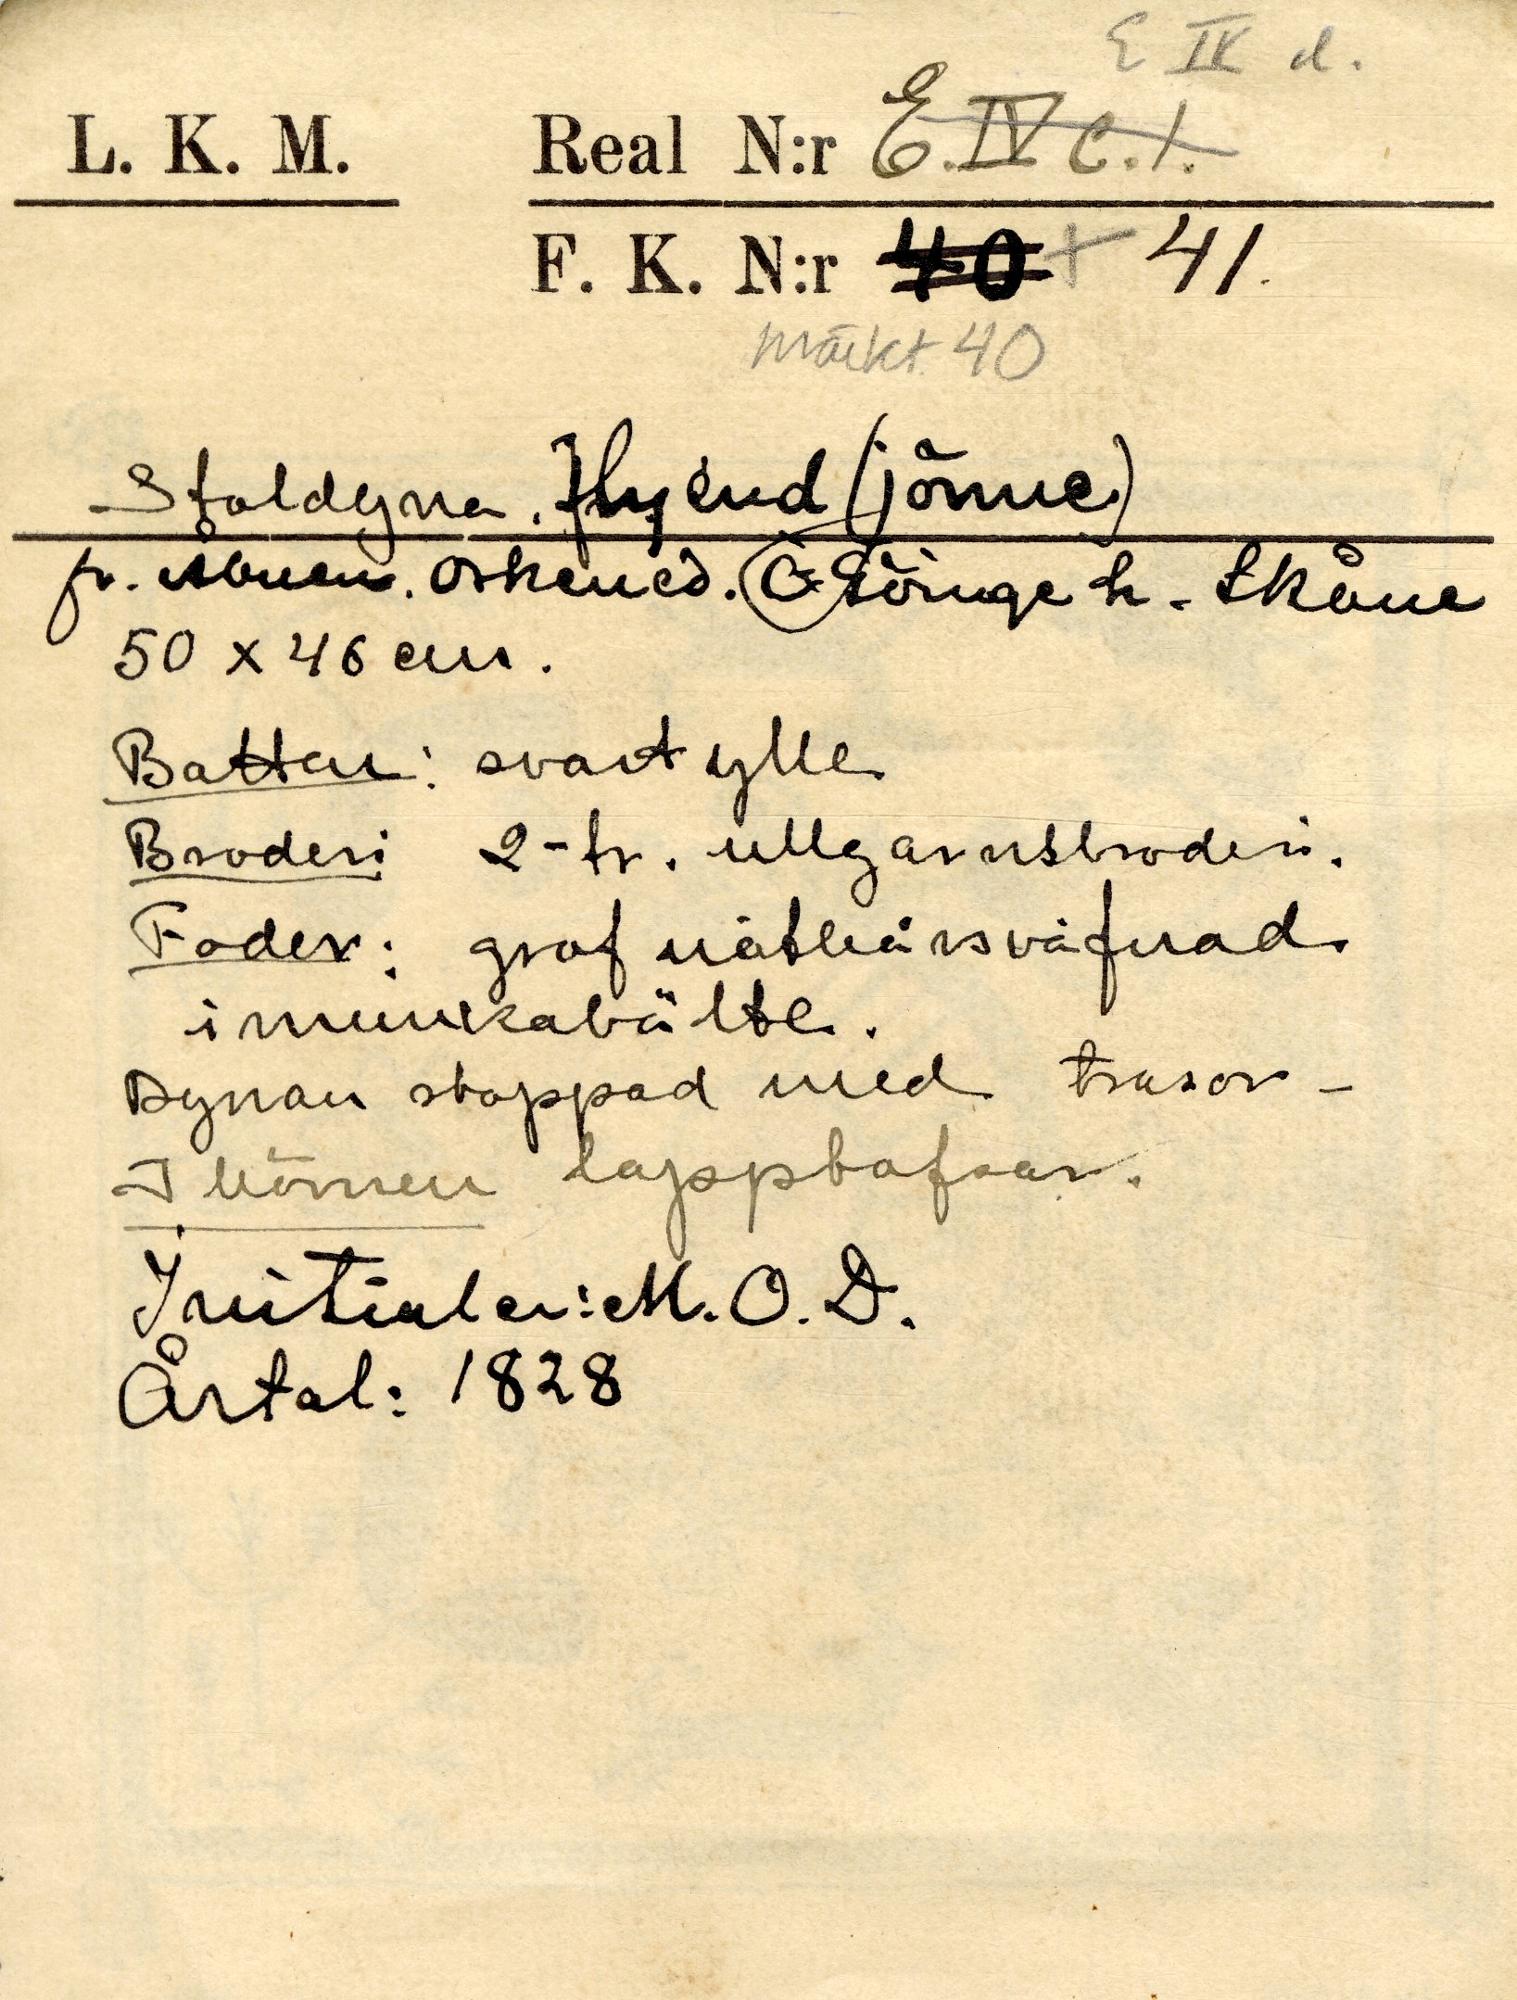 E IV d.
L. K. M. Real N:r E. IV c. 1.
F. K. N:r 40 + 41.
märkt 40
Stoldyna. Hyend (jönne)
fr. Åbuen. Örkened. Ö Göinge h. Skåne
50 x 46 cm.
Botten: svart ylle
Broderi 2-tr. ullgarnsbroderi.
Foder: grof nöthårsväfnad
i munkabälte.
Dynan stoppad med trasor -
I hörnen lapptofsar.
Initialer: M. O. D.
Årtal: 1828